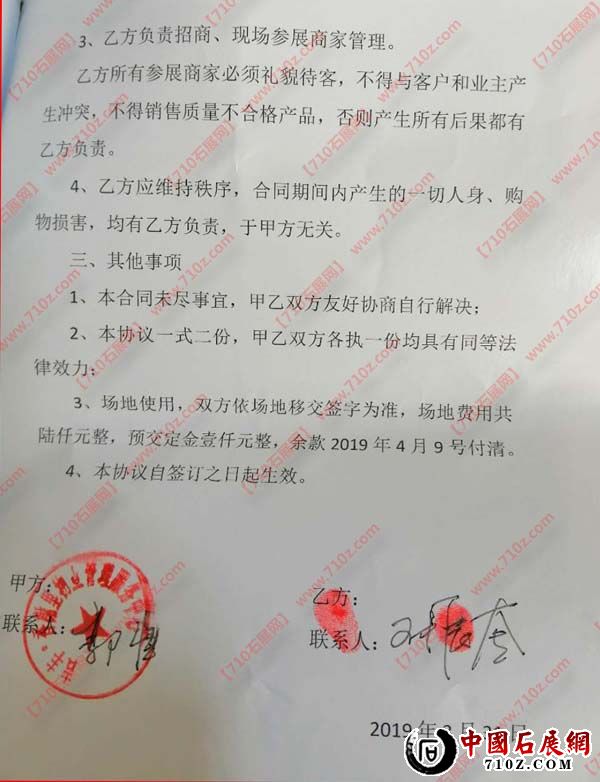 3、乙方负责招商、现场参展商家管理。
乙方所有参展商家必须礼貌待客，不得与客户和业主产
生冲突，不得销售质量不合格产品，否则产生所有后果都有
乙方负责。
4、乙方应维持秩序，合同期间内产生的一切人身、购
物损害，均有乙方负责，于甲方无关。
三、其他事项
1、本合同未尽事宜，甲乙双方友好协商自行解决；
2、本协议一式二份，甲乙双方各执一份均具有同等法
律效力；
3、场地使用，双方依场地移交签字为准，场地费用共
陆仟元整，预交定金壹仟元整，余款 2019 年 4 月 9 号付清。
4、本协议自签订之日起生效。
甲方：
联系人：
乙方：
联系人：
2019 年
中國石展網
710z.com
【710石展网】www.710z.com